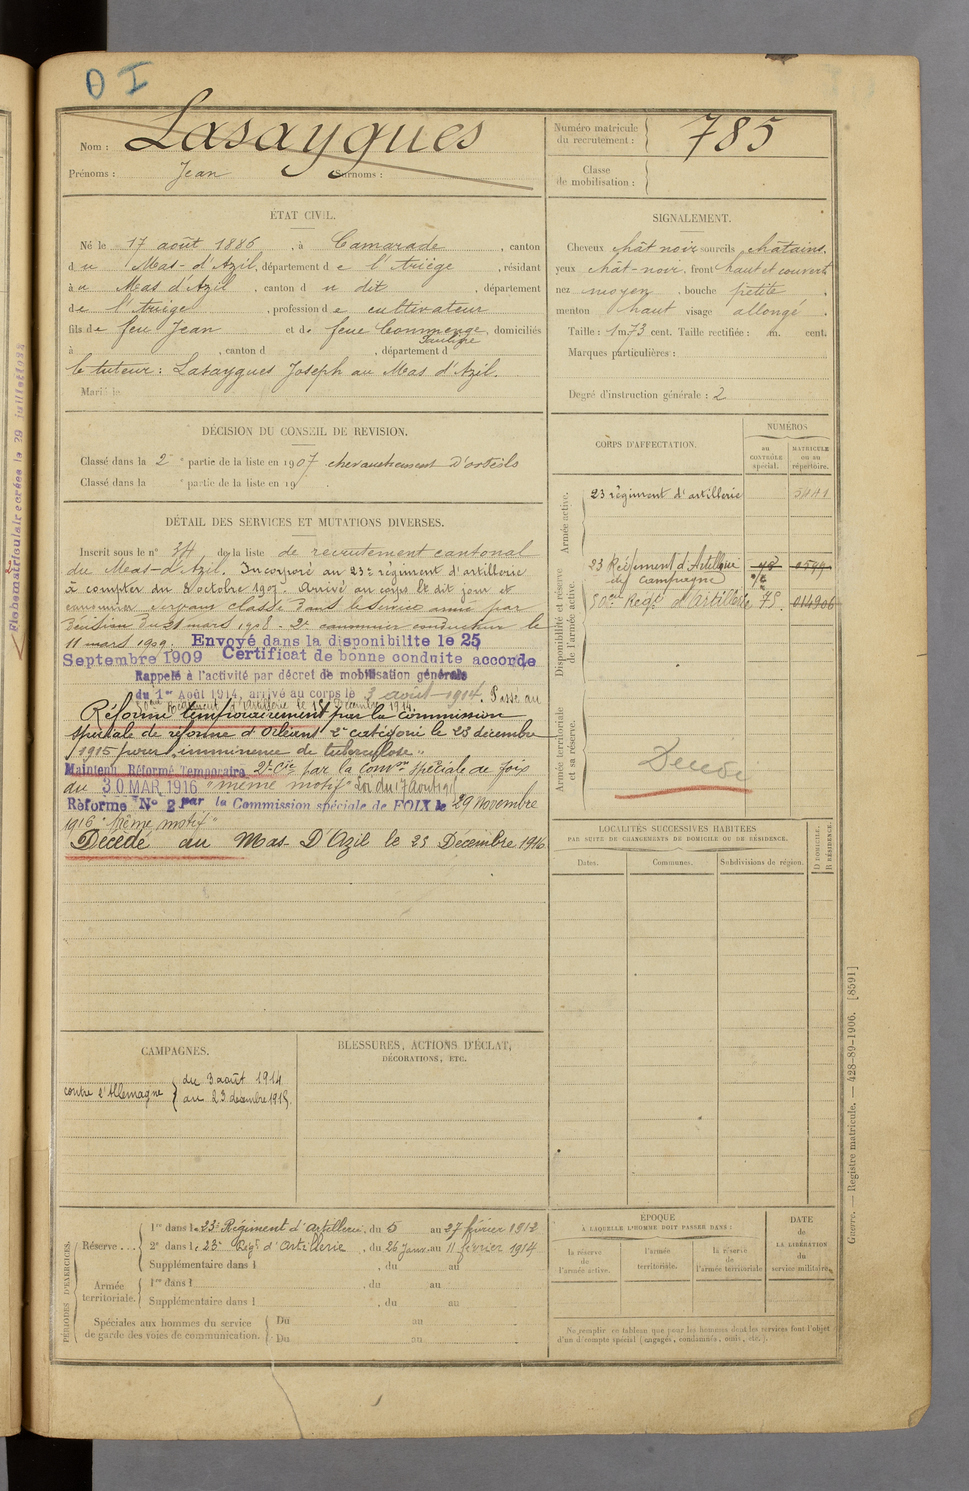 O I
Nom : Lasaygues
Prénoms : Jean Surnoms :
Numéro matricule du recrutement : 785
Classe de mobilisation :
ÉTAT CIVIL.
Né le 17 août 1886, à Camarade, canton
du Mas-d'Azil, département de l'Ariège, résidant
à u Mas d'Azil, canton du dit, département
de l'Ariège, profession de cultivateur
fils de feu Jean et de feue Commenge, domiciliés
à , canton d , département d
le tuteur : Lasaygues Joseph au Mas d'Azil.
Marié le
SIGNALEMENT.
Cheveux chât noir sourcils châtains.
yeux chât-noir. front haut et couvert
nez moyen, bouche petite.
menton haut visage allongé.
Taille : 1 m 73 cent. Taille rectifiée : m. cent.
Marques particulières :
Degré d'instruction générale : 2
DÉCISION DU CONSEIL DE REVISION.
Classé dans la 2e partie de la liste en 1907 chevauchement d'orteils
Classé dans la e partie de la liste en 19
DÉTAIL DES SERVICES ET MUTATIONS DIVERSES.
Inscrit sous le n° 34 de la liste de recrutement cantonal
du Mas-d'Azil. Incorporé au 23e régiment d'artillerie
à compter du octobre 1907. Arrivé au corps le dit jour et
canonnier servant classé dans le service armé par
décision du 21 mars 1908. 2e canonnier conducteur le
11 mars 1909. Envoyé dans la disponibilite le 25
Septembre 1909 Certificat de bonne conduite accorde
Rappelé à l'activité par décret de mobilisation générale
du 1er Août 1914, arrivé au corps le 3 août 1914. Passé au
Régiment d'Artillerie le Décembre 1914.
Réformé temporairement par la commission
spéciale de réforme d'Orléans 2e catégorie le 23 décembre
1915 pour "imminence de tuberculose"
Maintenu Réformé Temporaire 2e Cie par la Comon spéciale de Foix
du 30 MAR 1916 "même motif" Loi du 17 Août 191
Réforme N° 2 par la Commission spéciale de FOIX le 29 Novembre
1916 "Même motif"
Décédé au Mas-D'Azil le 25 Décembre 1916
CORPS D'AFFECTATION.
NUMÉROS
au CONTRÔLE spécial.
MATRICULE ou au répertoire.
Armée active.
23 régiment d'artillerie
Disponibilité et réserve de l'armée active.
23 Régiment d'Artillerie
de campagne
Regt d'Artillerie 75. 014906
Armée territoriale et sa réserve.
Décédé
LOCALITÉS SUCCESSIVES HABITÉES
PAR SUITE DE CHANGEMENTS DE DOMICILE OU DE RÉSIDENCE.
Dates. Communes. Subdivisions de région. D DOMICILE. R RÉSIDENCE.
CAMPAGNES.
contre l'Allemagne du 3 août 1914
au 23 décembre 1915.
BLESSURES, ACTIONS D'ÉCLAT,
DÉCORATIONS, ETC.
PÉRIODES D'EXERCICES.
Réserve... 1re dans le 23e Régiment d'Artillerie, du 5 au 27 février 1912
2e dans le 23e Regt d'Artillerie, du 26 Janv. au 11 février 1914
Supplémentaire dans l , du au
Armée territoriale. 1re dans l , du au
Supplémentaire dans l , du au
Spéciales aux hommes du service de garde des voies de communication. Du au
Du au
ÉPOQUE
À LAQUELLE L'HOMME DOIT PASSER DANS :
la réserve de l'armée active.
l'armée territoriale.
la réserve de l'armée territoriale
DATE DE LA LIBÉRATION du service militaire.
Ne remplir ce tableau que pour les hommes dont les services font l'objet
d'un décompte spécial (engagés, condamnés, omis, etc.).
Guerre. — Registre matricule. — 428-89-1906. [8591]